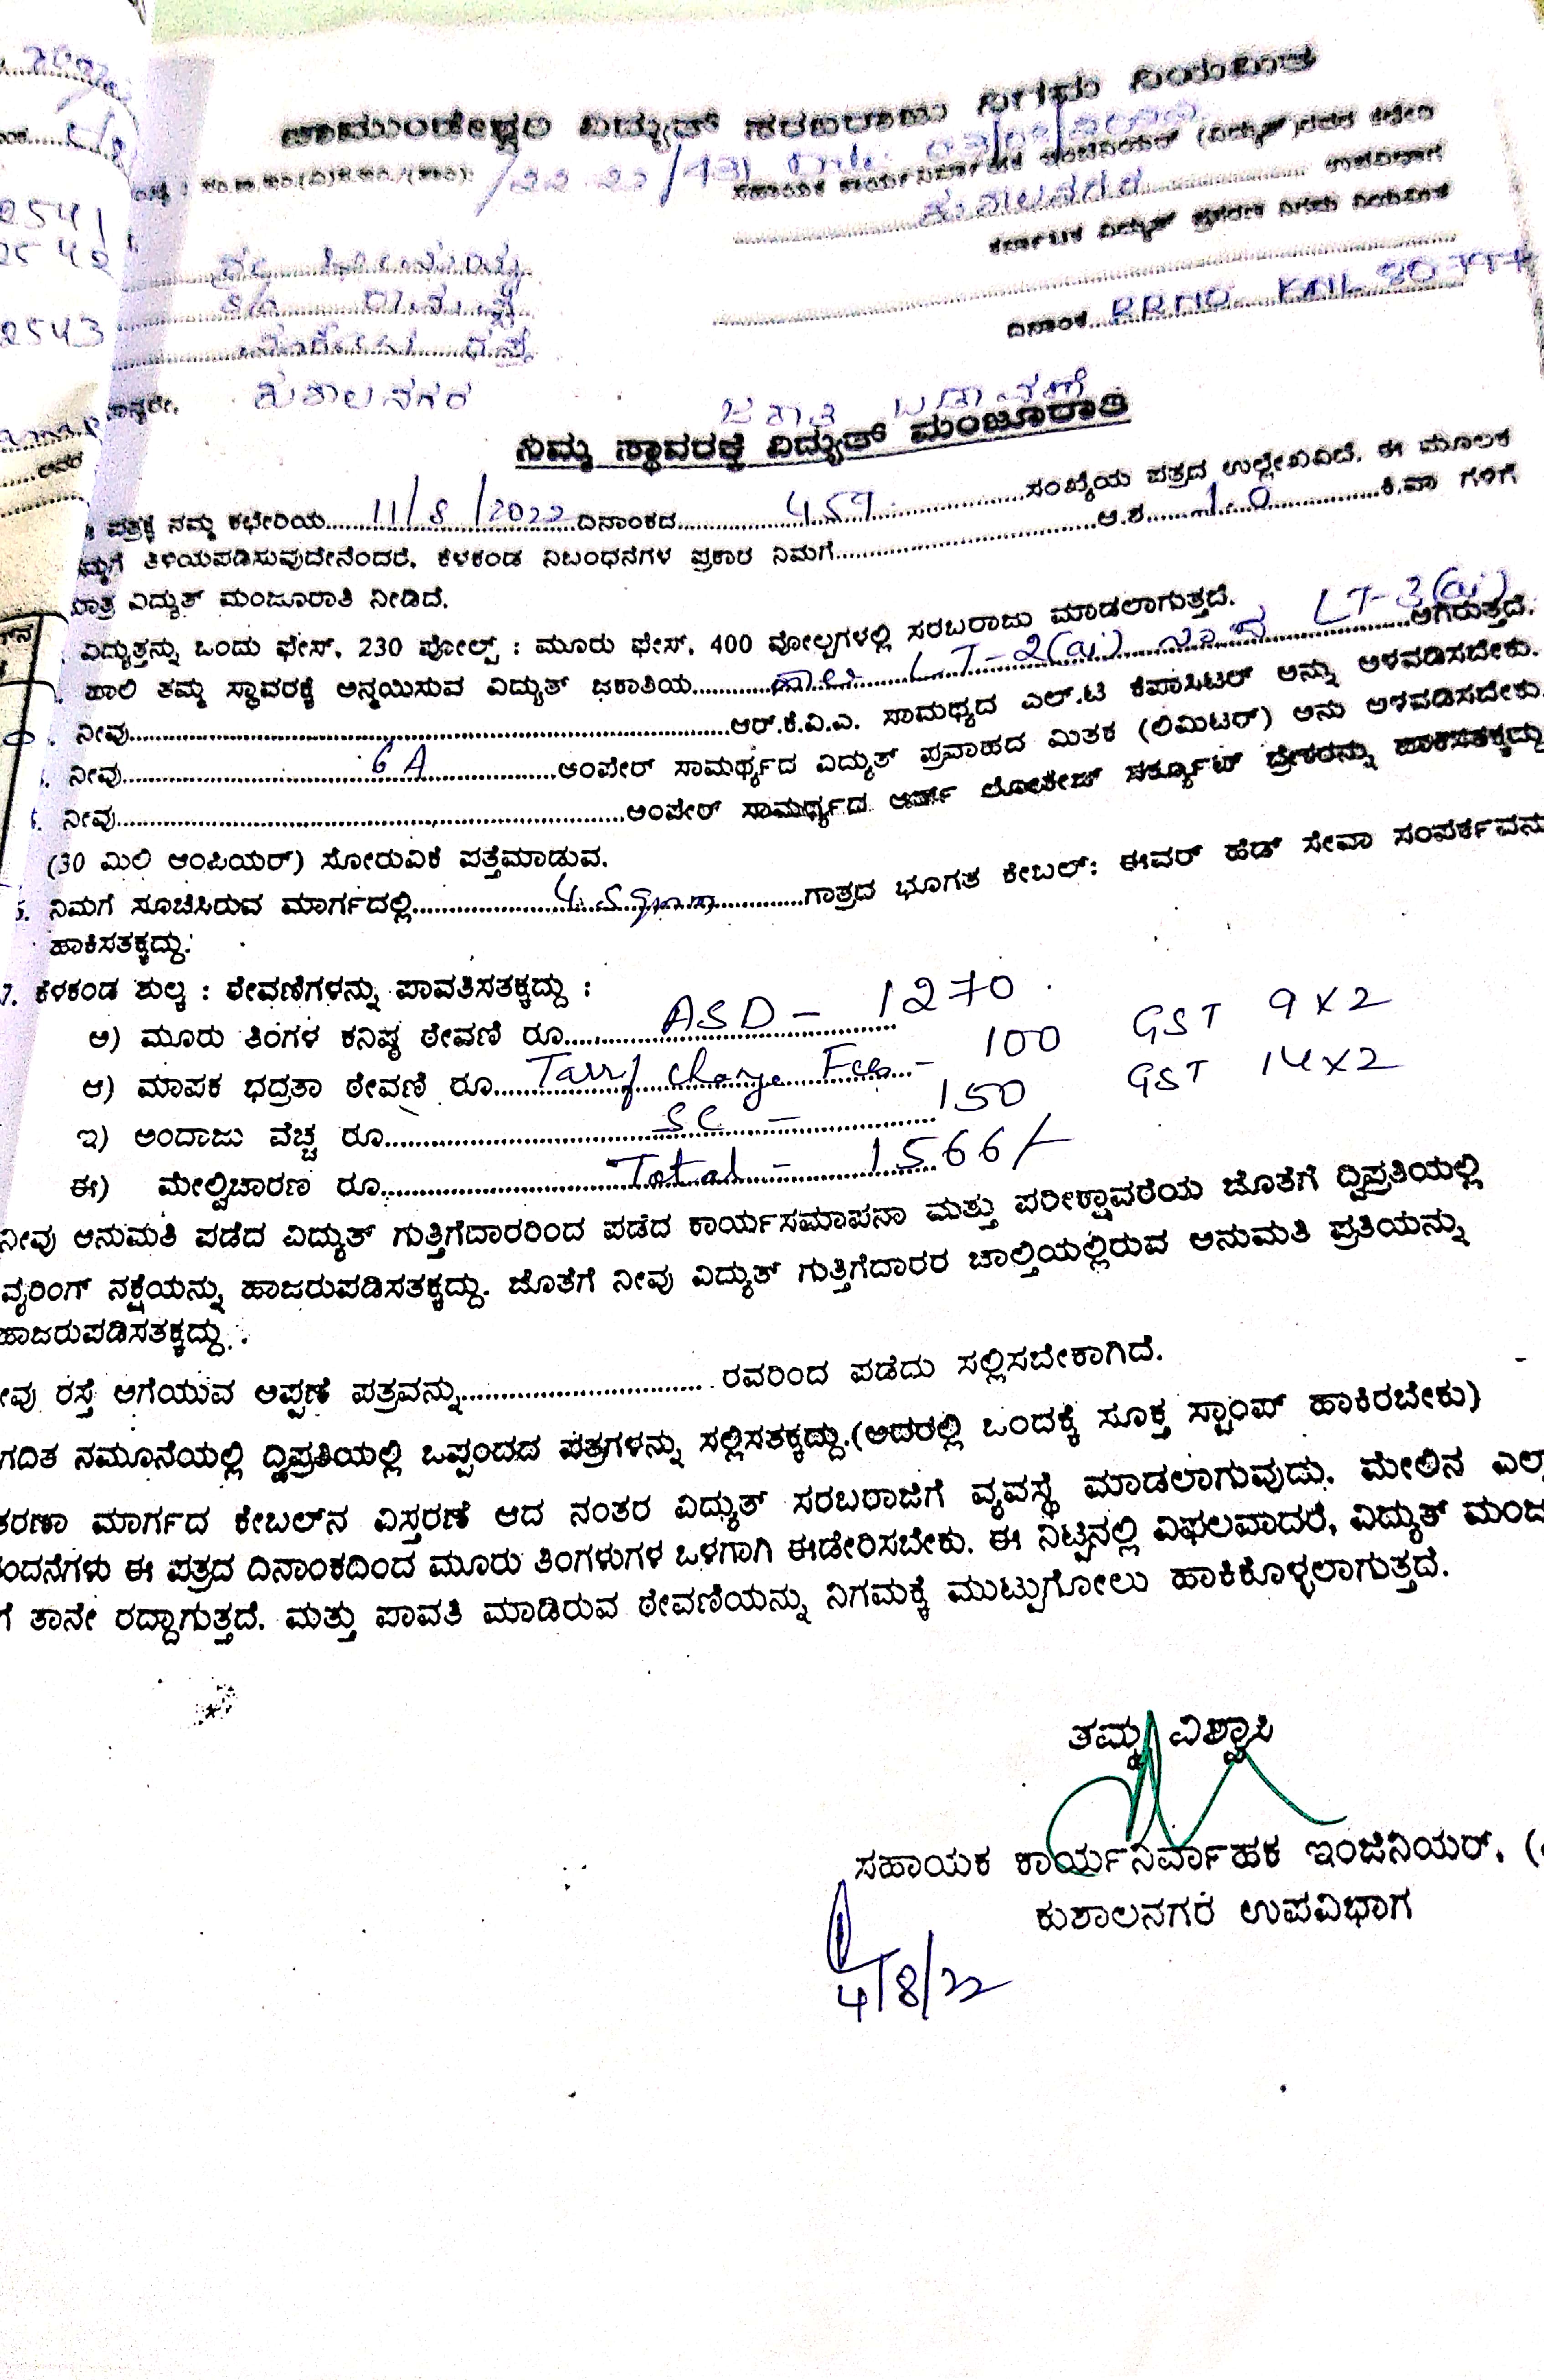 ಚಾಮುಂಡೇಶ್ವರಿ ವಿದ್ಯುತ್ ಸರಬರಾಜು ನಿಗಮ ನಿಯಮಿತ
/22-23/
ಸಹಾಯಕ ಕಾರ್ಯನಿರ್ವಾಹಕ ಇಂಜಿನಿಯರ್ (ವಿದ್ಯುತ್)ರವರ ಕಛೇರಿ
ಕುಶಾಲನಗರ ಉಪವಿಭಾಗ
ಕರ್ನಾಟಕ ವಿದ್ಯುತ್ ಪ್ರಸರಣ ನಿಗಮ ನಿಯಮಿತ
2541
2542
2543
ದಿನಾಂಕ RRNO KNL
ಮಾನ್ಯರೇ, ಕುಶಾಲನಗರ
ಜಕಾತಿ ಬದಲಾವಣೆ
ನಿಮ್ಮ ಸ್ಥಾವರಕ್ಕೆ ವಿದ್ಯುತ್ ಮಂಜೂರಾತಿ
ಪತ್ರಕ್ಕೆ ನಮ್ಮ ಕಛೇರಿಯ 11/8/2022 ದಿನಾಂಕದ 459 ಸಂಖ್ಯೆಯ ಪತ್ರದ ಉಲ್ಲೇಖವಿದೆ. ಈ ಮೂಲಕ
ತಿಳಿಯಪಡಿಸುವುದೇನೆಂದರೆ, ಕೆಳಕಂಡ ನಿಬಂಧನೆಗಳ ಪ್ರಕಾರ ನಿಮಗೆ ಅ.ಶ 1.0 ಕಿ.ವಾ ಗಳಿಗೆ
ಮಾತ್ರ ವಿದ್ಯುತ್ ಮಂಜೂರಾತಿ ನೀಡಿದೆ.
ವಿದ್ಯುತ್ತನ್ನು ಒಂದು ಫೇಸ್, 230 ವೋಲ್ಟ್ : ಮೂರು ಫೇಸ್, 400 ವೋಲ್ಟಗಳಲ್ಲಿ ಸರಬರಾಜು ಮಾಡಲಾಗುತ್ತದೆ.
ಹಾಲಿ ತಮ್ಮ ಸ್ಥಾವರಕ್ಕೆ ಅನ್ವಯಿಸುವ ವಿದ್ಯುತ್ ಜಕಾತಿಯ LT-2(ai) ಇಂದ LT-3(ai) ಆಗಿರುತ್ತದೆ.
ನೀವು ಆರ್.ಕೆ.ವಿ.ಎ. ಸಾಮರ್ಥ್ಯದ ಎಲ್.ಟಿ ಕೆಪಾಸಿಟರ್ ಅನ್ನು ಅಳವಡಿಸಬೇಕು.
ನೀವು 6A ಆಂಪೇರ್ ಸಾಮರ್ಥ್ಯದ ವಿದ್ಯುತ್ ಪ್ರವಾಹದ ಮಿತಕ (ಲಿಮಿಟರ್) ಅನು ಅಳವಡಿಸಬೇಕು.
ನೀವು ಅಂಪೇರ್ ಸಾಮರ್ಥ್ಯದ ಅರ್ತ್ ಲೀಕೇಜ್ ಸರ್ಕ್ಯೂಟ್ ಬ್ರೇಕರನ್ನು ಹಾಕಿಸತಕ್ಕದ್ದು
(30 ಮಿಲಿ ಆಂಪಿಯರ್) ಸೋರುವಿಕೆ ಪತ್ತೆಮಾಡುವ.
ನಿಮಗೆ ಸೂಚಿಸಿರುವ ಮಾರ್ಗದಲ್ಲಿ 4 sqmm ಗಾತ್ರದ ಭೂಗತ ಕೇಬಲ್: ಈವರ್ ಹೆಡ್ ಸೇವಾ ಸಂಪರ್ಕವನು
ಹಾಕಿಸತಕ್ಕದ್ದು.
7. ಕೆಳಕಂಡ ಶುಲ್ಕ : ಠೇವಣಿಗಳನ್ನು ಪಾವತಿಸತಕ್ಕದ್ದು :
ಅ) ಮೂರು ತಿಂಗಳ ಕನಿಷ್ಠ ಠೇವಣಿ ರೂ ASD - 1270
ಆ) ಮಾಪಕ ಭದ್ರತಾ ಠೇವಣಿ ರೂ Tarrf charge Fees - 100 GST 9x2
ಇ) ಅಂದಾಜು ವೆಚ್ಚ ರೂ SC - 150 GST 14x2
ಈ) ಮೇಲ್ವಿಚಾರಣ ರೂ Total - 1566/-
ನೀವು ಅನುಮತಿ ಪಡೆದ ವಿದ್ಯುತ್ ಗುತ್ತಿಗೆದಾರರಿಂದ ಪಡೆದ ಕಾರ್ಯಸಮಾಪನಾ ಮತ್ತು ಪರೀಕ್ಷಾವರಿಯ ಜೊತೆಗೆ ದ್ವಿಪ್ರತಿಯಲ್ಲಿ
ವೈರಿಂಗ್ ನಕ್ಷೆಯನ್ನು ಹಾಜರುಪಡಿಸತಕ್ಕದ್ದು. ಜೊತೆಗೆ ನೀವು ವಿದ್ಯುತ್ ಗುತ್ತಿಗೆದಾರರ ಚಾಲ್ತಿಯಲ್ಲಿರುವ ಅನುಮತಿ ಪ್ರತಿಯನ್ನು
ಹಾಜರುಪಡಿಸತಕ್ಕದ್ದು.
ವು ರಸ್ತೆ ಅಗೆಯುವ ಅಪ್ಪಣೆ ಪತ್ರವನ್ನು ರವರಿಂದ ಪಡೆದು ಸಲ್ಲಿಸಬೇಕಾಗಿದೆ.
ಗದಿತ ನಮೂನೆಯಲ್ಲಿ ದ್ವಿಪ್ರತಿಯಲ್ಲಿ ಒಪ್ಪಂದದ ಪತ್ರಗಳನ್ನು ಸಲ್ಲಿಸತಕ್ಕದ್ದು.(ಅದರಲ್ಲಿ ಒಂದಕ್ಕೆ ಸೂಕ್ತ ಸ್ಟಾಂಪ್ ಹಾಕಿರಬೇಕು)
ಕರಣಾ ಮಾರ್ಗದ ಕೇಬಲ್‌ನ ವಿಸ್ತರಣೆ ಆದ ನಂತರ ವಿದ್ಯುತ್ ಸರಬರಾಜಿಗೆ ವ್ಯವಸ್ಥೆ ಮಾಡಲಾಗುವುದು. ಮೇಲಿನ ಎಲ್ಲಾ
ಂದನೆಗಳು ಈ ಪತ್ರದ ದಿನಾಂಕದಿಂದ ಮೂರು ತಿಂಗಳುಗಳ ಒಳಗಾಗಿ ಈಡೇರಿಸಬೇಕು. ಈ ನಿಟ್ಟಿನಲ್ಲಿ ವಿಫಲವಾದರೆ, ವಿದ್ಯುತ್ ಮಂಜ
ಗೆ ತಾನೇ ರದ್ದಾಗುತ್ತದೆ. ಮತ್ತು ಪಾವತಿ ಮಾಡಿರುವ ಠೇವಣಿಯನ್ನು ನಿಗಮಕ್ಕೆ ಮುಟ್ಟುಗೋಲು ಹಾಕಿಕೊಳ್ಳಲಾಗುತ್ತದೆ.
ತಮ್ಮ ವಿಶ್ವಾಸಿ
ಸಹಾಯಕ ಕಾರ್ಯನಿರ್ವಾಹಕ ಇಂಜಿನಿಯರ್, (
ಕುಶಾಲನಗರ ಉಪವಿಭಾಗ
4/8/22